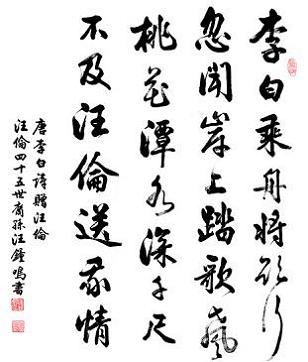 李白乘舟将欲行
忽闻岸上踏歌声
桃花潭水深千尺
不及汪伦送我情
唐李白诗赠汪伦
汪伦四十五世裔孙汪钟鸣书